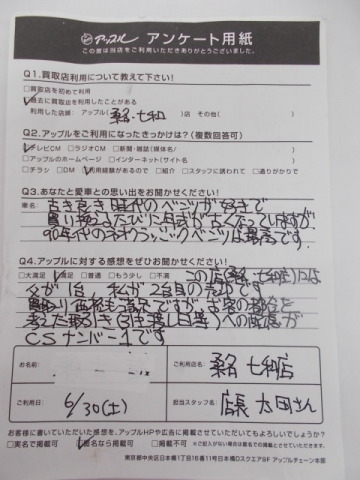 アップル アンケート用紙
この度は当店をご利用いただきありがとうございました。
Q1.買取店利用について教えて下さい!
□買取店を初めて利用
□過去に買取店を利用したことがある
利用した店頭: アップル( 桑名・七和 )店 その他( )
Q2.アップルをご利用になったきっかけは?(複数回答可)
□テレビCM □ラジオCM □新聞・雑誌(媒体名/ )
□アップルのホームページ □インターネット(サイト名 )
□チラシ □DM □利用経験があるので □紹介 □スタッフに誘われて □通りがかりで
Q3.あなたと愛車との思い出をお聞かせください!
車名: 古き良き時代のベンツが好きで
買い換えるたびに年式が古くなっていますが、
90年代のネオクラシックベンツは最高です。
Q4.アップルに対する感想をぜひお聞かせください!
□大満足 □満足 □普通 □もう少し □不満 この店(桑名七和店)には
父が1台、私が2台目の売却です
買取り価格も満足ですが、お客の都合を
考えた取引き(引き渡し日等)への配慮が
CSナンバー1です
お名前:
ご利用店名: 桑名七和店
ご利用日: 6/30(土)
担当スタッフ名: 店長 太田さん
お客様に書いていただいた感想を、アップルHPや広告に掲載させていただいてもよろしいでしょうか?
□実名で掲載可 □匿名なら掲載可 □掲載不可 ※ご記入がない場合は匿名での掲載とさせていただきます。
東京都中央区日本橋1丁目16番11号日本橋Dスクエア5F アップルチェーン本部